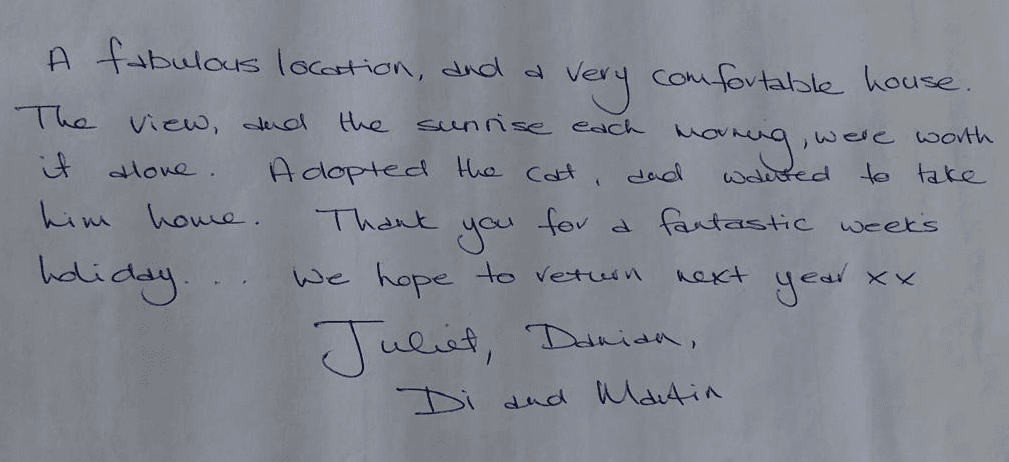 A fabulous location, and a very comfortable house.
The view, and the sunrise each morning, were worth
it alone. Adopted the cat, and wanted to take
him home. Thank you for a fantastic week's
holiday... We hope to return next year xx
Juliet, Damian,
Di and Martin